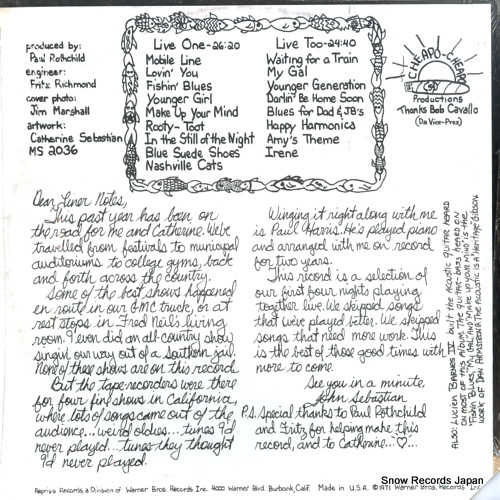 produced by:
Paul Rothchild
engineer:
Fritz Richmond
cover photo:
Jim Marshall
artwork:
Catherine Sebastian
MS 2036
Live One-26:20
Mobile Line
Lovin' You
Fishin' Blues
Younger Girl
Make Up Your Mind
Rooty-Toot
In the Still of the Night
Blue Suede Shoes
Nashville Cats
Live Too-24:40
Waiting for a Train
My Gal
Younger Generation
Darlin' Be Home Soon
Blues for Dad & JB's
Happy Harmonica
Amy's Theme
Irene
CHEAPO-CHEAPO
Productions
Thanks Bob Cavallo
(Da Vice-Prez)
Dear Liner Notes,
This past year has been on
the road for me and Catherine. We've
travelled from festivals to municipal
auditoriums to college gyms, back
and forth across the country.
Some of the best shows happened
en route in our GMC truck, or at
rest stops in Fred Neil's living
room. I even did an all-country show
singin' our way out of a Southern jail.
None of these shows are on this record.
But the tape recorders were there
for four fine shows in California,
where lots of songs came out of the
audience...weird oldies...tunes I'd
never played...tunes they thought
I'd never played.
Winging it right along with me
is Paul Harris. He's played piano
and arranged with me on record
for two years.
This record is a selection of
our first four nights playing
together live. We skipped songs
that we've played better. We skipped
songs that need more work. This
is the best of those good times with
more to come.
See you in a minute,
John Sebastian
P.S. Special thanks to Paul Rothchild
and Fritz for helping make this
record, and to Catherine...♡...
ALSO: LUCIEN BARNES IV built the ACOUSTIC guitar HEARD
ON MOST OF THIS ALBUM. THE guitar-BASS HEARD ON
"Fishin' Blues," "My Gal," AND "Make up your Mind" is the
WORK OF DAN ARMSTRONG. THE ACOUSTIC IS A Heritage Gibson.
Reprise Records, a Division of Warner Bros. Records Inc. 4000 Warner Blvd. Burbank, Calif. Made in U.S.A. © 1971 Warner Bros. Records Inc.
Snow Records Japan